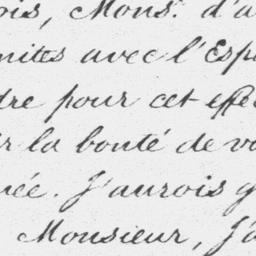 ois, Mons.r d'a
nites avec l'Esp
dre pour cet effe
r la bonté de vo
ée. J'aurois q
Monsieur, J'a